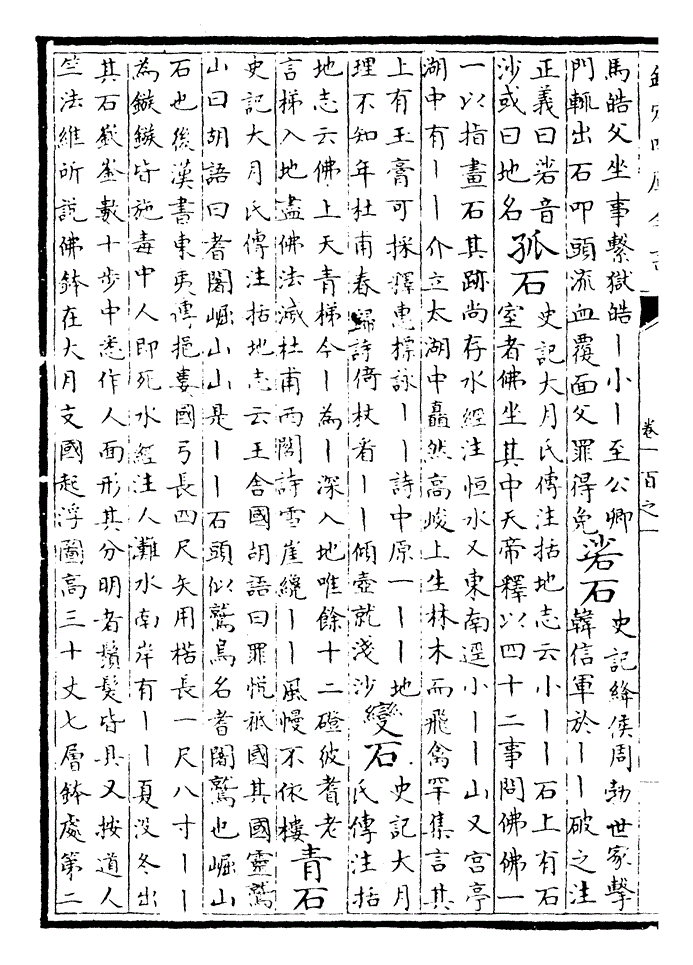 欽定四庫全書
卷一百之一
馬皓父坐事繫獄皓丨小丨至公卿
門輒出石叩頭流血覆面父罪得免
砦石
史記絳侯周勃世家擊
韓信軍於丨丨破之注
正義曰砦音
沙或曰地名
孤石
史記大月氏傳注括地志云小丨丨石上有石
室者佛坐其中天帝釋以四十二事問佛佛一
一以指畫石其跡尚存水經注恒水又東南逕小丨丨山又宮亭
湖中有丨丨介立太湖中矗然高峻上生林木而飛禽罕集言其
上有玉膏可採釋惠標詠丨丨詩中原一丨丨丨地
理不知年杜甫春歸詩倚杖看丨丨傾壺就淺沙
變石
史記大月
氏傳注括
地志云佛上天青梯今丨為丨深入地唯餘十二磴彼耆老
言梯入地盡佛法滅杜甫西閣詩雪崖纔丨丨風幔不依樓
青石
史記大月氏傳注括地志云王舍國胡語曰罪悅祗國其國靈鷲
山曰胡語曰耆闍崛山山是丨丨石頭似鷲鳥名耆闍鷲也崛山
石也後漢書東夷傳挹婁國弓長四尺矢用楛長一尺八寸丨丨
為鏃鏃皆施毒中人即死水經注人灘水南岸有丨丨夏没冬出
其石嶔崟數十步中悉作人面形其分明者鬚髮皆具又按道人
竺法維所說佛鉢在大月支國起浮圖高三十丈七層鉢處第二